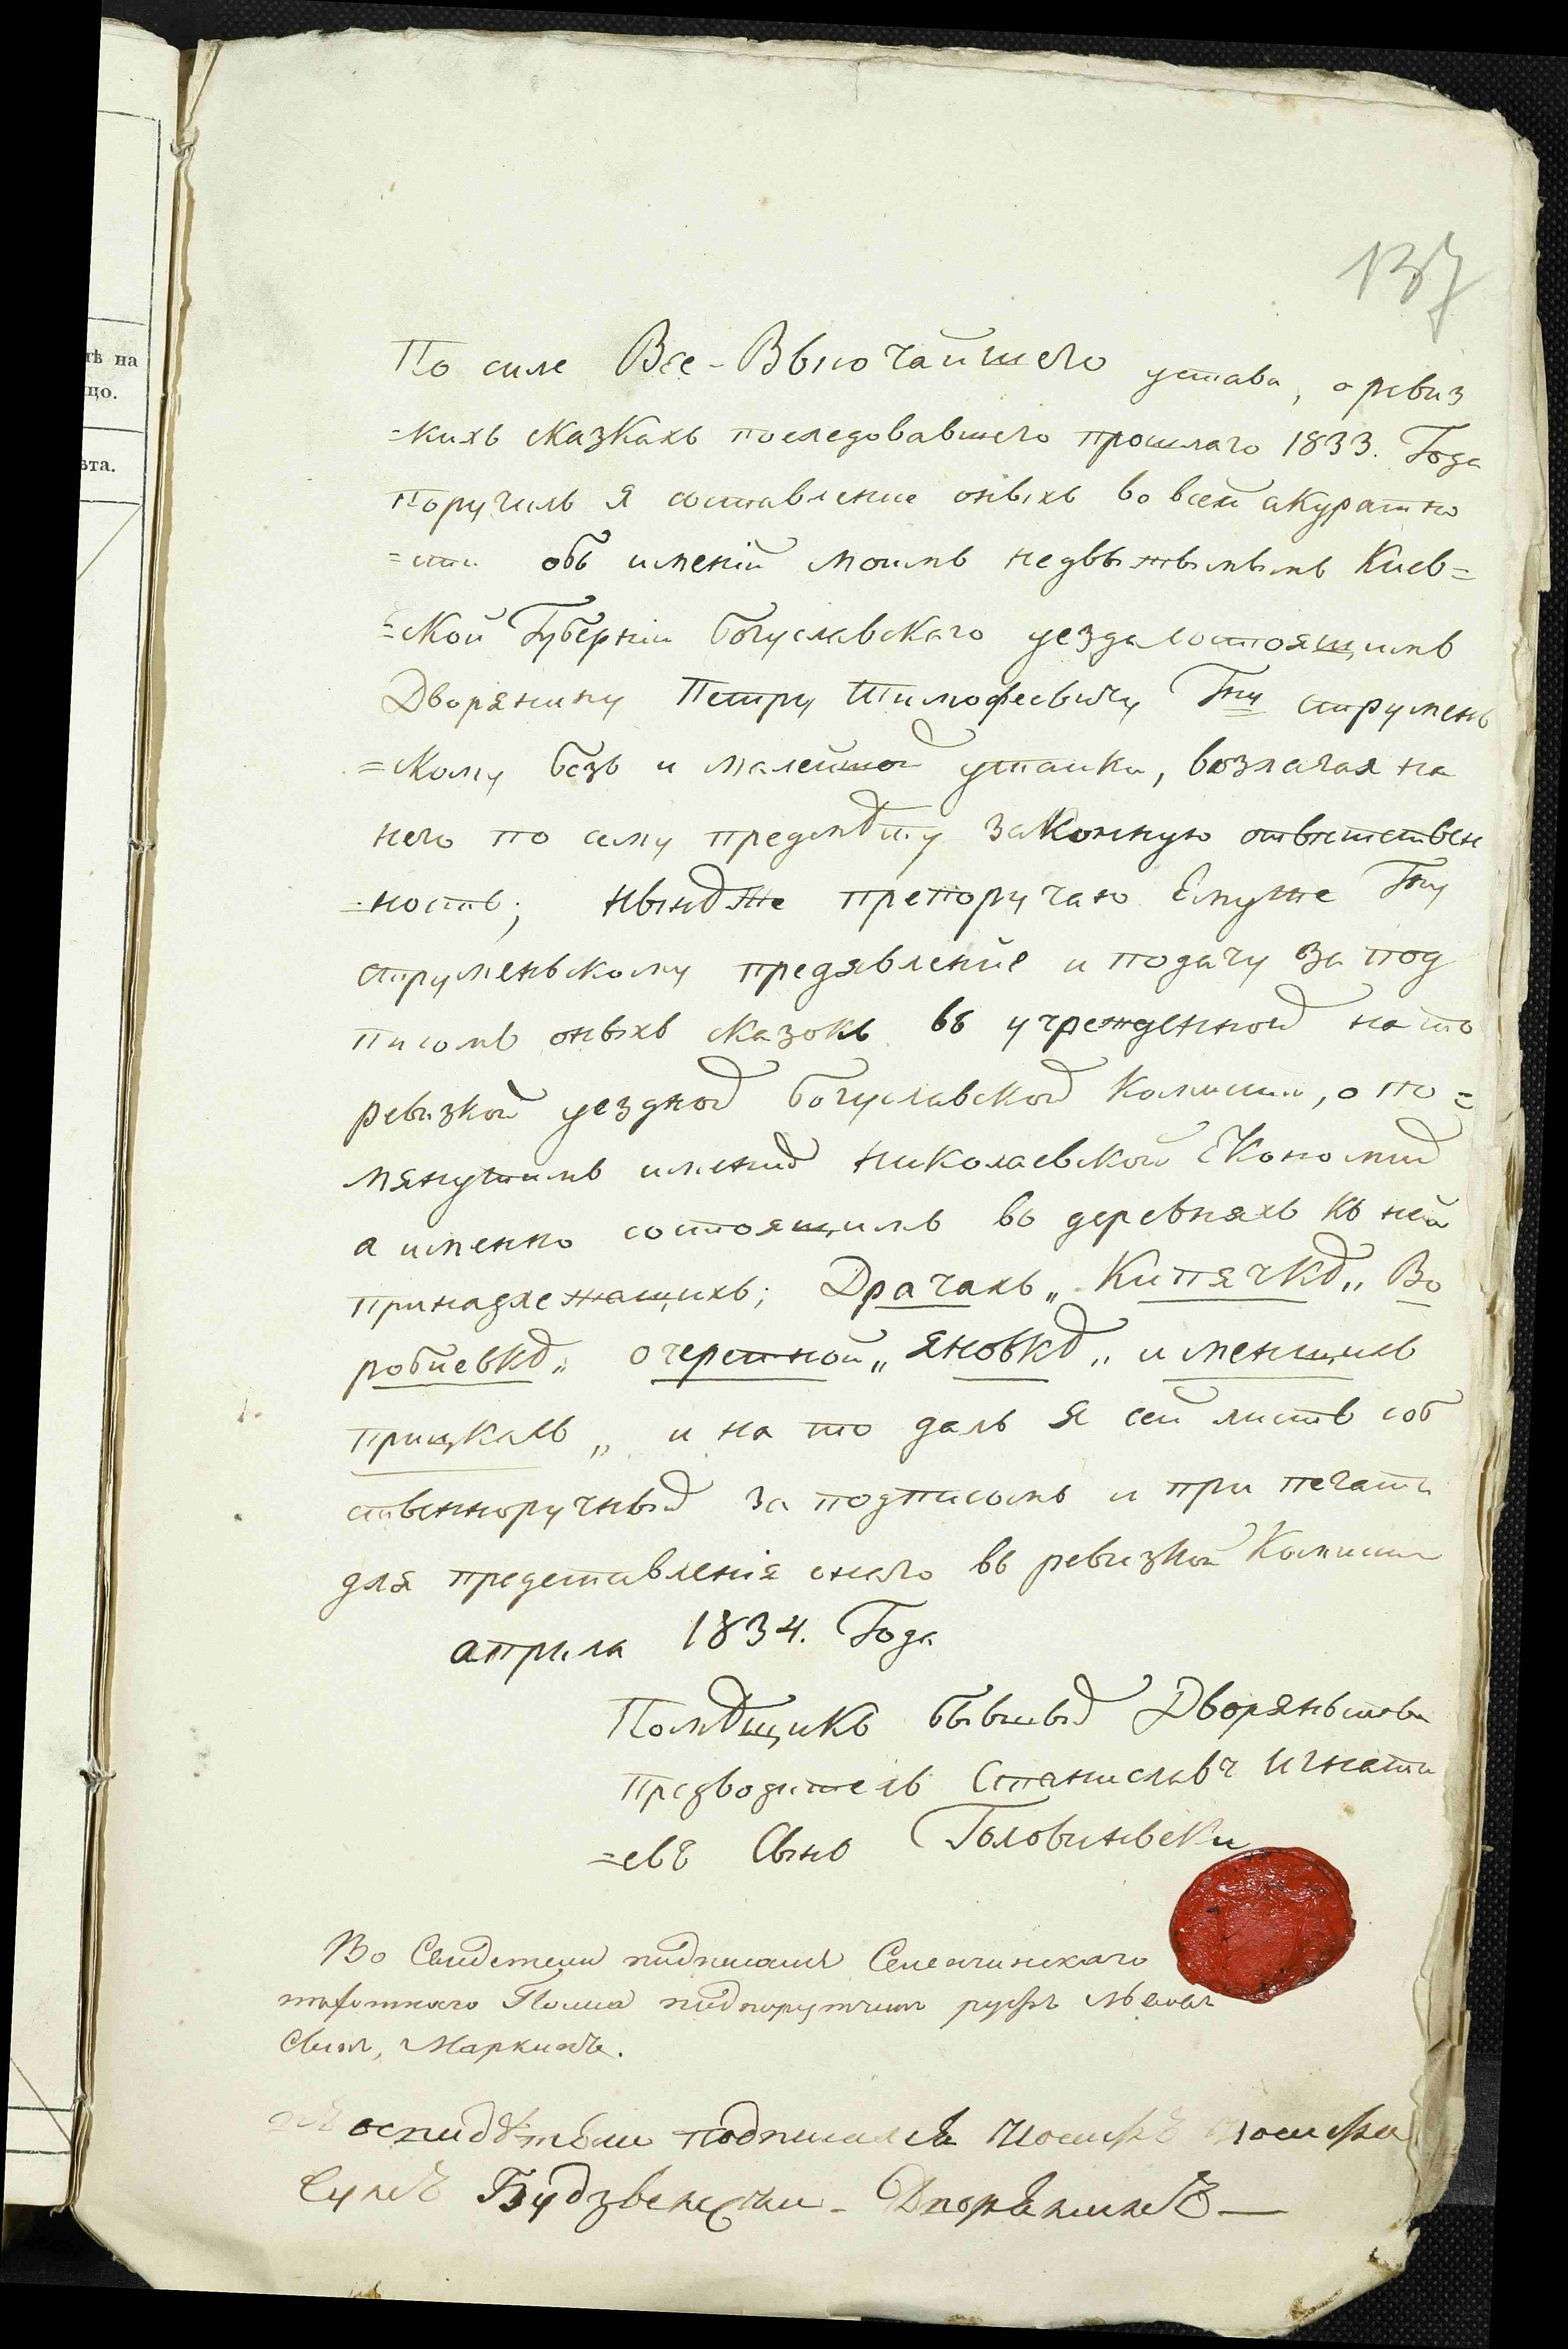 137
тѣ на
цо.
ѣта.
По силе Все-Высочайшего устава, о ревиз
=кихъ сказкахъ последовавшего прошлаго 1833. Года
поручилъ я составление оныхъ во всей акуратно
=сти объ имений моимъ недвыжвымымъ Киев=
=ской Губерніи богуславскаго уезда состоящимъ
Дворянину Петру Тимофеевичу Гну струмень
=скому безъ и малейшой утайки, возлагая на
него по сему предмѣту законную отвѣтствен
=ность; нынѣже препоручаю Емуже Гну
струменьскому предявление и подачу за под
писомъ оныхъ сказокъ въ учрежденной на то
ревизкой уездной богуславской Комисии, о по=
мянутимъ имений николаевской Економий
а именно состоящимъ въ деревняхъ къ ней
принадлежащихъ; Драчахъ „ Кипячкѣ „ Во
робиевкѣ „ очеретной „ яновкѣ „ и менщихъ
прицкахъ „ и на то далъ я сей листъ соб
ственноручный за подписомъ и при печати
для представленія оного въ ревизкой Комисии
априля 1834. Года
Помѣщикъ бывшый Дворяньства
предводитель Станиславъ Игнати
=евъ Сынъ Головиньски
Во Свидетели подписался
Сынъ, Маркизъ.
подписался Иосифъ Иосифа
Сунъ Будзвенски - Дворянинъ —